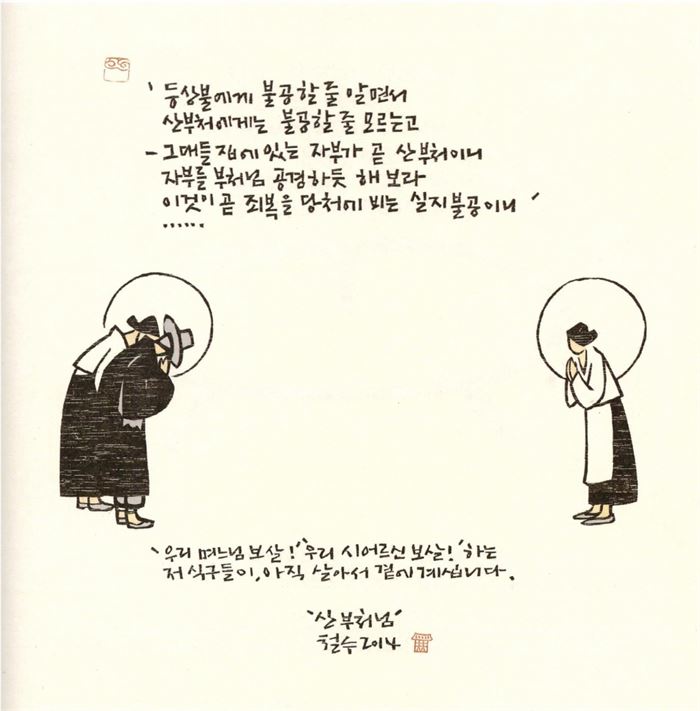 '등상불에게 불공할 줄 알면서
산부처에게는 불공할 줄 모르는고
- 그대들 집에 있는 자부가 곧 산부처이니
자부를 부처님 공경하듯 해 보라
이것이 곧 죄복을 당처에 비는 실지불공이니'
......
'우리 며느님 보살!' '우리 시어르신 보살!' 하는
저 식구들이, 아직 살아서 곁에 계십니다.
'산 부처님'
철수 2014